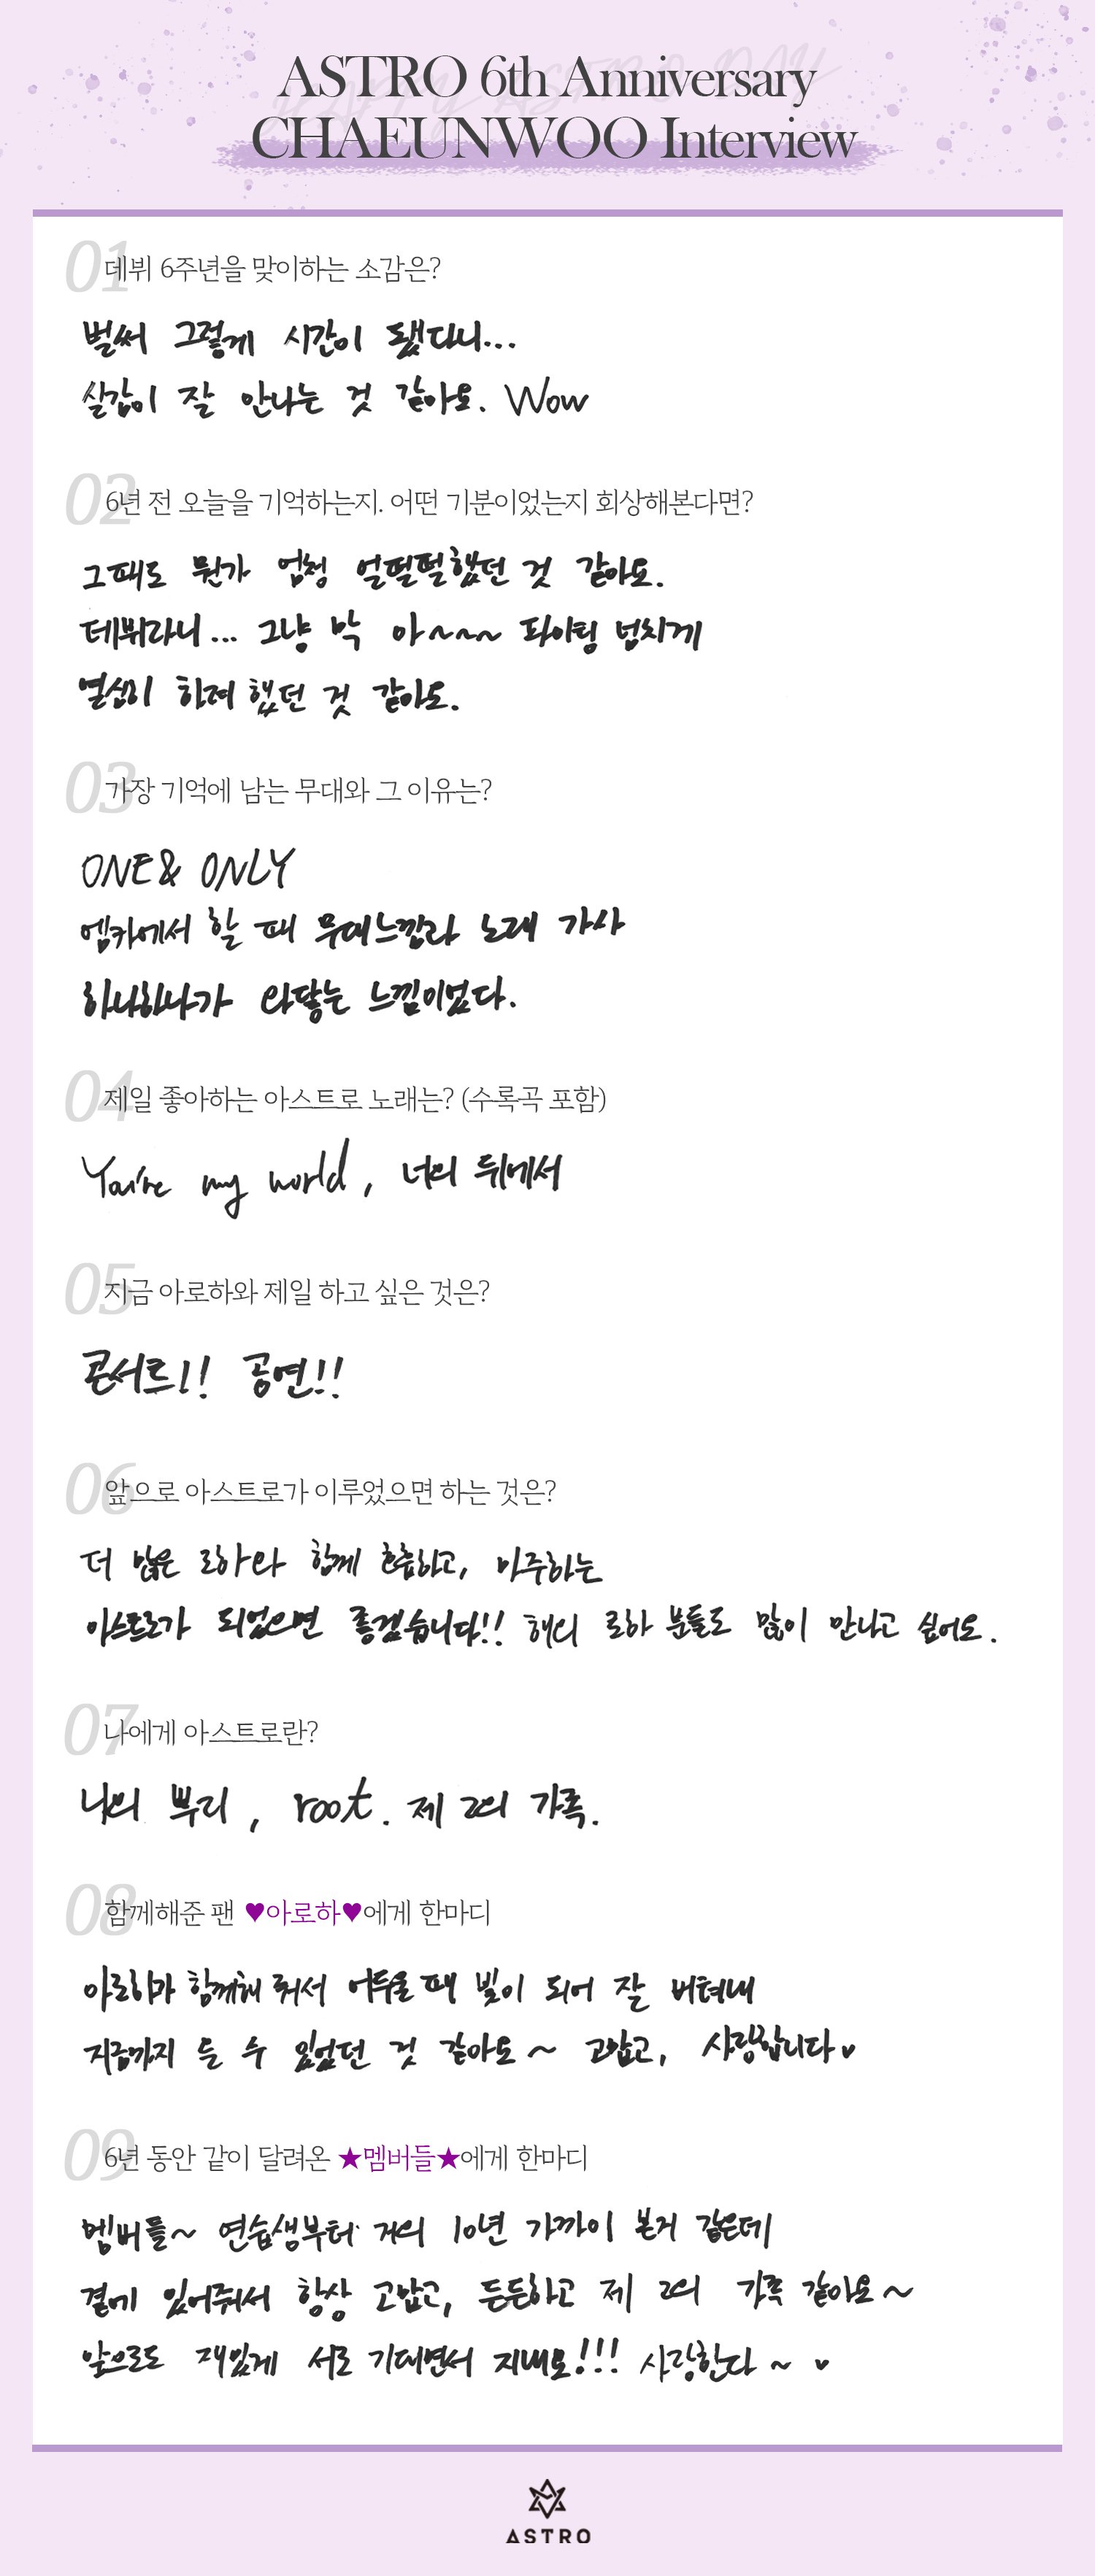 HAPPY ASTRO DAY
ASTRO 6th Anniversary
CHAEUNWOO Interview
01 데뷔 6주년을 맞이하는 소감은?
벌써 그렇게 시간이 됐다니...
실감이 잘 안나는 것 같아요. Wow
02 6년 전 오늘을 기억하는지. 어떤 기분이었는지 회상해본다면?
그때도 뭔가 엄청 얼떨떨했던 것 같아요.
데뷔라니... 그냥 막 아~~~ 파이팅 넘치게
열심히 하려 했던 것 같아요.
03 가장 기억에 남는 무대와 그 이유는?
ONE & ONLY
엠카에서 할 때 무대느낌과 노래 가사
하나하나가 와닿는 느낌이었다.
04 제일 좋아하는 아스트로 노래는? (수록곡 포함)
You're my world, 너의 뒤에서
05 지금 아로하와 제일 하고 싶은 것은?
콘서트!! 공연!!
06 앞으로 아스트로가 이루었으면 하는 것은?
더 많은 로하와 함께 호흡하고, 마주하는
아스트로가 되었으면 좋겠습니다!! 해외 로하 분들도 많이 만나고 싶어요.
07 나에게 아스트로란?
나의 뿌리, root. 제 2의 가족.
08 함께해준 팬 ♥아로하♥에게 한마디
아로하가 함께해 줘서 어두울 때 빛이 되어 잘 버텨내
지금까지 올 수 있었던 것 같아요~ 고맙고, 사랑합니다♥
09 6년 동안 같이 달려온 ★멤버들★에게 한마디
멤버들~ 연습생부터 거의 10년 가까이 본거 같은데
곁에 있어줘서 항상 고맙고, 든든하고 제 2의 가족 같아요~
앞으로도 재밌게 서로 기대면서 지내요!!! 사랑한다~ ♥
ASTRO